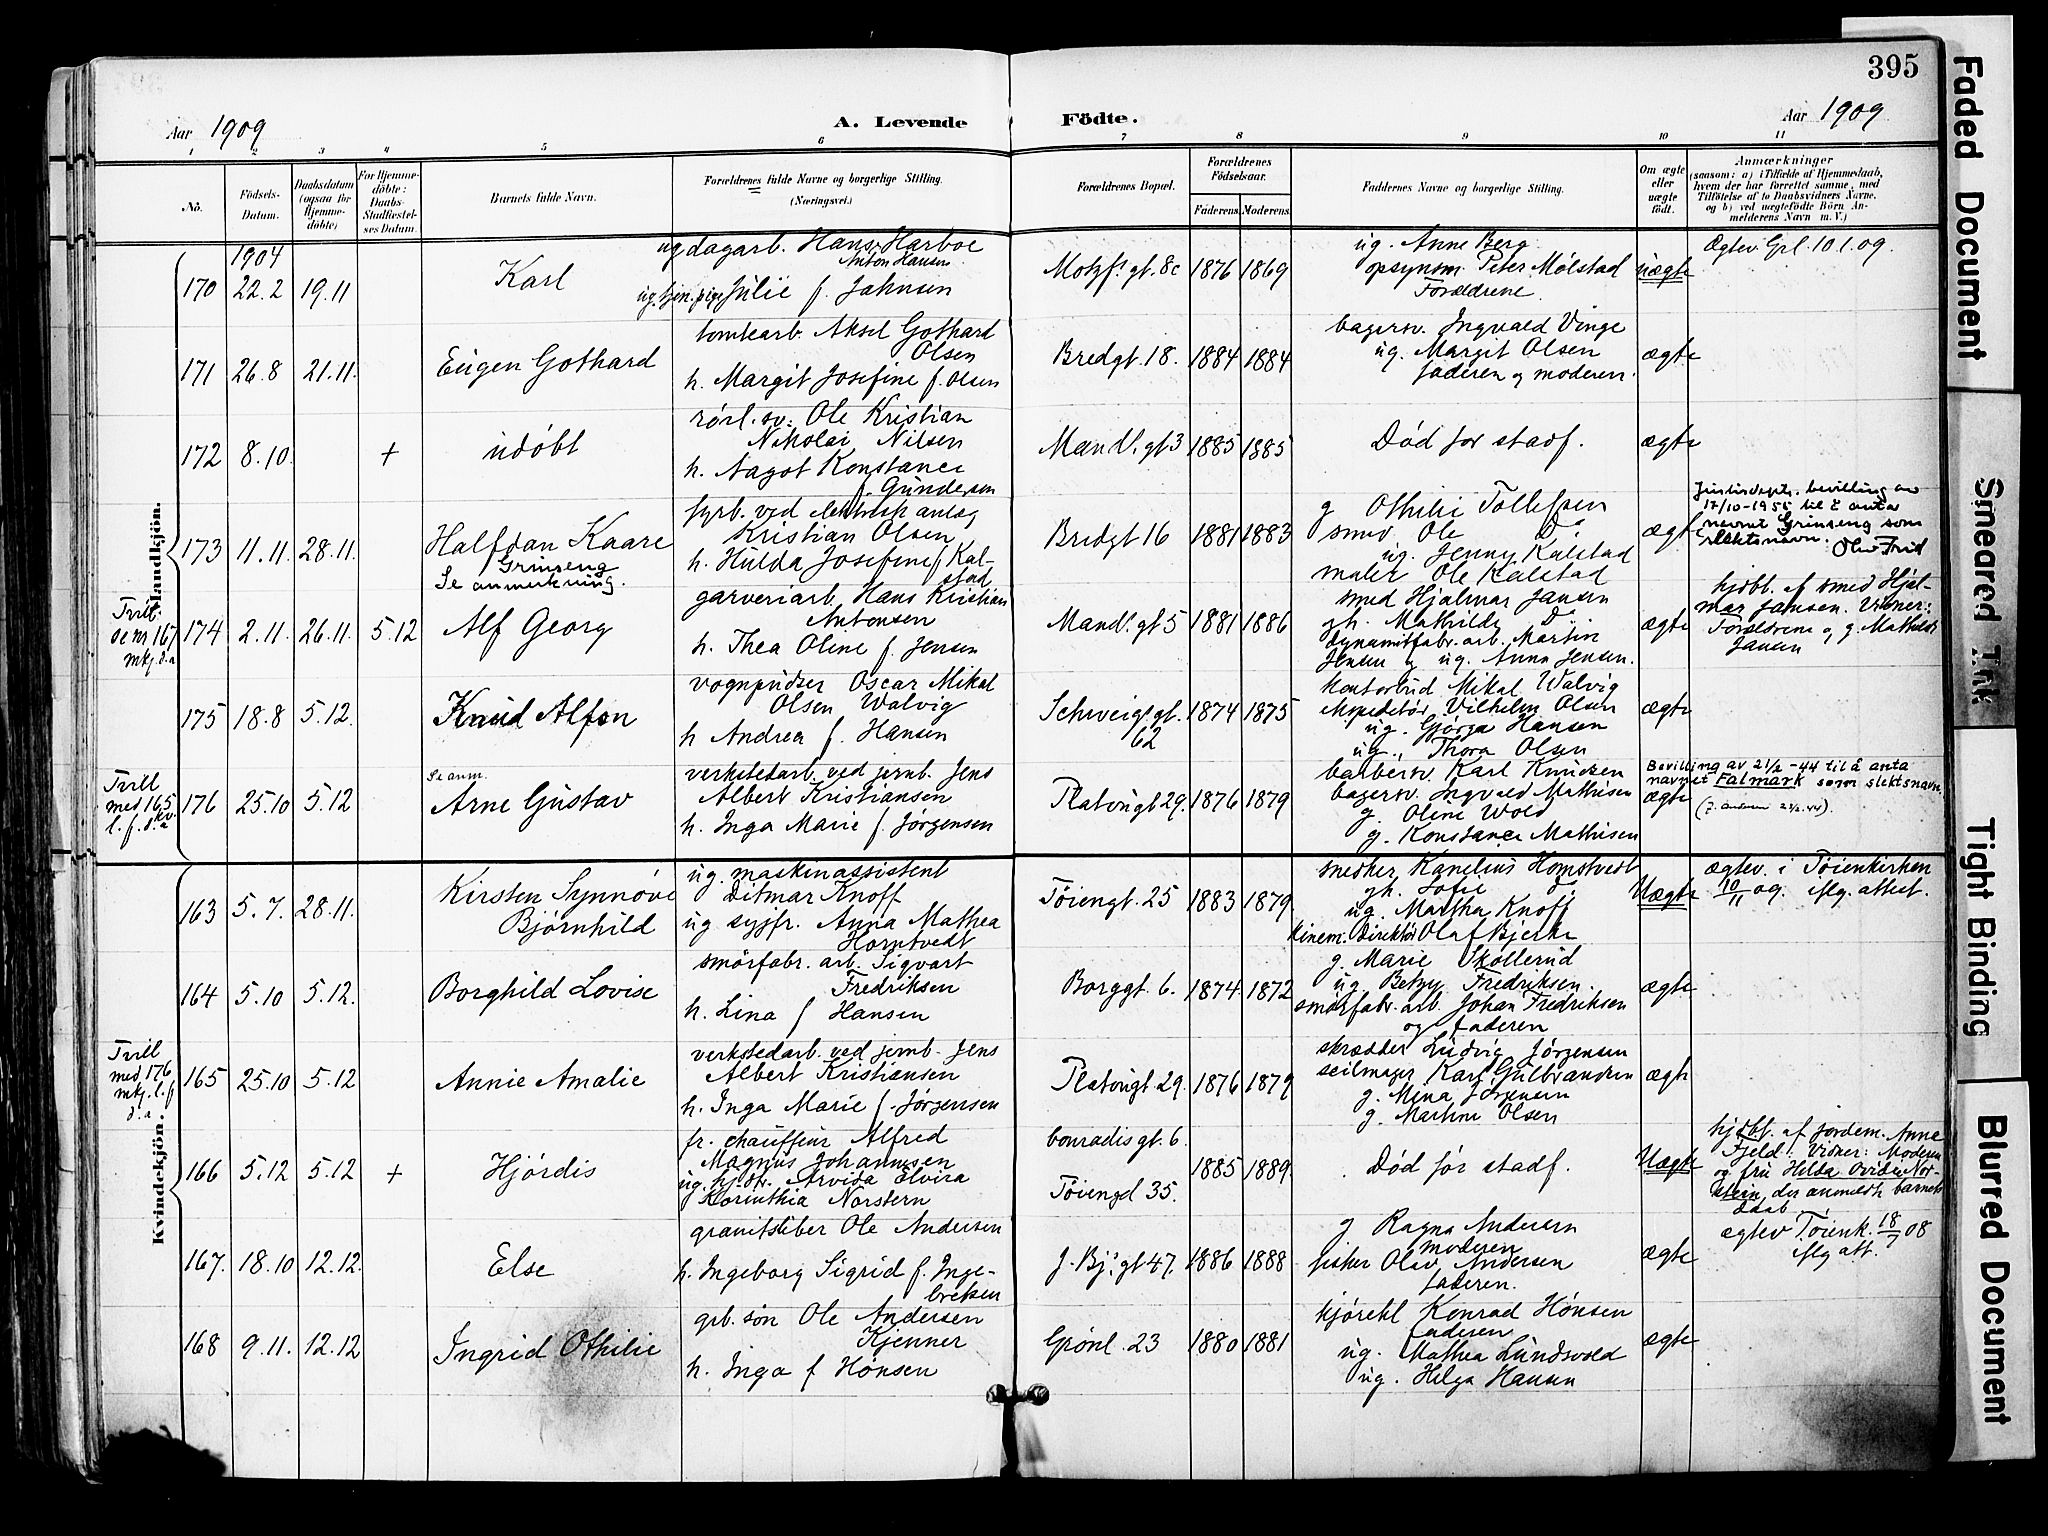 395
Aar 1909
A. Levende Födte.
Aar 1909
1 2 3 4 5 6 7 8 9 10 11
No.
Födsels-Datum.
Daabsdatum (ogsaa for Hjemme-döbte)
For Hjemme-döbte: Daabs-Stadfæstel-ses Datum.
Barnets fulde Navn.
Forældrenes fulde Navne og borgerlige Stilling.
(Næringsvei.)
Forældrenes Bopæl.
Forældrenes Födselsaar.
Faderens Moderens
Faddernes Navne og borgerlige Stilling.
Om ægte eller uægte födt.
Anmærkninger
(saasom: a) i Tilfælde af Hjemmedaab,
hvem der har forrettet samme, med
Tilföielse af to Daabsvidners Navne,
og b) ved uægtefödte Börn An-
melderens Navn m. V.)
Mandkjön.
1904
170 22.2 19.11
Karl
ug dagarb. Hans Harboe
Anton Hansen
ug. tjen. pige Julie f. Jahnsen
Motzf. gt. 8c 1876 1869
ug. Anne Berg
opsynsm. Peter Mølstad
Forældrene.
uægte
Ægtev. Grl. 10.1.09.
171 26.8 21.11.
Eugen Gothard
tomtearb. Aksel Gothard
Olsen
h. Margit Josefine f. Olsen
Bredgt. 18. 1884 1884
bagersv. Ingvald Vinge
ug. Margit Olsen
faderen og moderen.
ægte
172 8.10. +
udøbt
rørl. sv. Ole Kristian
Nikolai Nilsen
h. Nagot Konstance
f. Gundersen
Mandl. gt 3 1885 1885
Død før stadf.
ægte
173 11.11. 28.11.
Halfdan Kaare
Grinseng
Se anmerkning.
fyrb. ved elektrisk anlæg
Kristian Olsen
h. Hulda Josefine f. Kal-
stad
Bredgt 16 1881 1883
g Othilie Tollefsen
smed Ole Do
ug. Jenny Kalstad
maler Ole Kalstad
ægte
Justisdept. bevilling av
17/10-1955 til å anta
navnet Grinseng som
slektsnavn.
Tvill.
se nr 167
mkj. d.a
174 2.11. 26.11. 5.12
Alf Georg
garveriarb. Hans Kristian
Antonsen
h. Thea Oline f. Jensen
Mandl. gt 5 1881 1886
smed Hjalmar Jansen
gh. Mathilde Do
dynamitfabr. arb. Martin
Jensen og ug. Anna Jensen.
ægte
hjdbt. af smed Hjal-
mar Jansen. Vidner:
Forældrene og g. Mathilde
Jansen
175 18.8 5.12.
Knud Alfon
vognpudser Oscar Mikal
Olsen Walvig
h Andrea f. Hansen
Schweig. gt.
62
1874 1875
kontorbud Mikal Walvig
ekspeditør Vilhelm Olsen
ug. Gjørga Hansen
ug. Thora Olsen
ægte
Tvill
med 165 kv.
l. f. d.a
176 25.10 5.12
Se anm.
Arne Gustav
verkstedarb. ved jernb. Jens
Albert Kristiansen
h. Inga Marie f. Jørgensen
Platougt 29. 1876 1879
barbersv. Karl Knudsen
bagersv. Ingvald Mathisen
g. Oline Wold
g. Konstance Mathisen
ægte
Bevilling av 21/2-44 til å anta
navnet Falmark som slektsnavn.
Kvindekjön.
163 5.7. 28.11.
Kirsten Synnøve
Bjørnhild
ug. maskinassistent
Ditmar Knoff
ug syjfr. Anna Mathea
Horntvedt
Tøiengt. 25 1883 1879
snedker Kanelius Homstvedt
gh. Sofie Do
ug. Martha Knoff
kinem. Direktør Olaf Bjerke
Uægte
ægtev. i Tøienkirken
10/11 09. iflg. attest.
164 5.10 5.12.
Borghild Lovise
smørfabr. arb. Sigvart
Fredriksen
h. Lina f Hansen
Borggt. 6. 1874 1872
g. Marie Skøllerud
ug. Betzy Fredriksen.
smørfabr. arb. Johan Fredriksen
og faderen
ægte
Tvill
med 176
mkj. l. f
d. a.
165 25.10 5.12
Annie Amalie
verkstedarb. ved jernb. Jens
Albert Kristiansen
h. Inga Marie f. Jørgensen
Platougt 29. 1876 1879
skrædder Ludvig Jørgensen
seilmager Karl Gulbrandsen
g. Mina Jørgensen
g. Martine Olsen
ægte
166 5.12 5.12 +
Hjørdis
fr. chauffeur Alfred
Magnus Johannesen
ug. hj. dr. Arvida Elvira
Korinthia Norstern
Conradis gt. 6.
Tøiengd 35.
1885 1889
Død før stadf.
Uægte
hjdbt. af jordem. Anne
Fjeld. Vidner: Modern
og fru Helda Ovidie Nor-
stein, der anmeldte barnets
daab
167. 18.10 12.12.
Else
granitsliber Ole Andersen
h. Ingeborg Sigrid f. Inge-
bretsen
J. Bj. gt 47. 1886 1888
g Ragna Andersen
moderen
fisker Olav Andersen
faderen.
ægte
ægtev Tøienk. 18/7 08
iflg att.
168 9.11. 12.12
Ingrid Othilie
grb. søn Ole Andersen
Kjenner
h. Inga f Hønsen
Grønl. 23 1880 1881
kjørekl Konrad Hønsen
faderen
ug. Mathea Lundsvold
ug. Helga Hansen
ægte
Faded Document
Smeared Ink
Tight Binding
Blurred Document